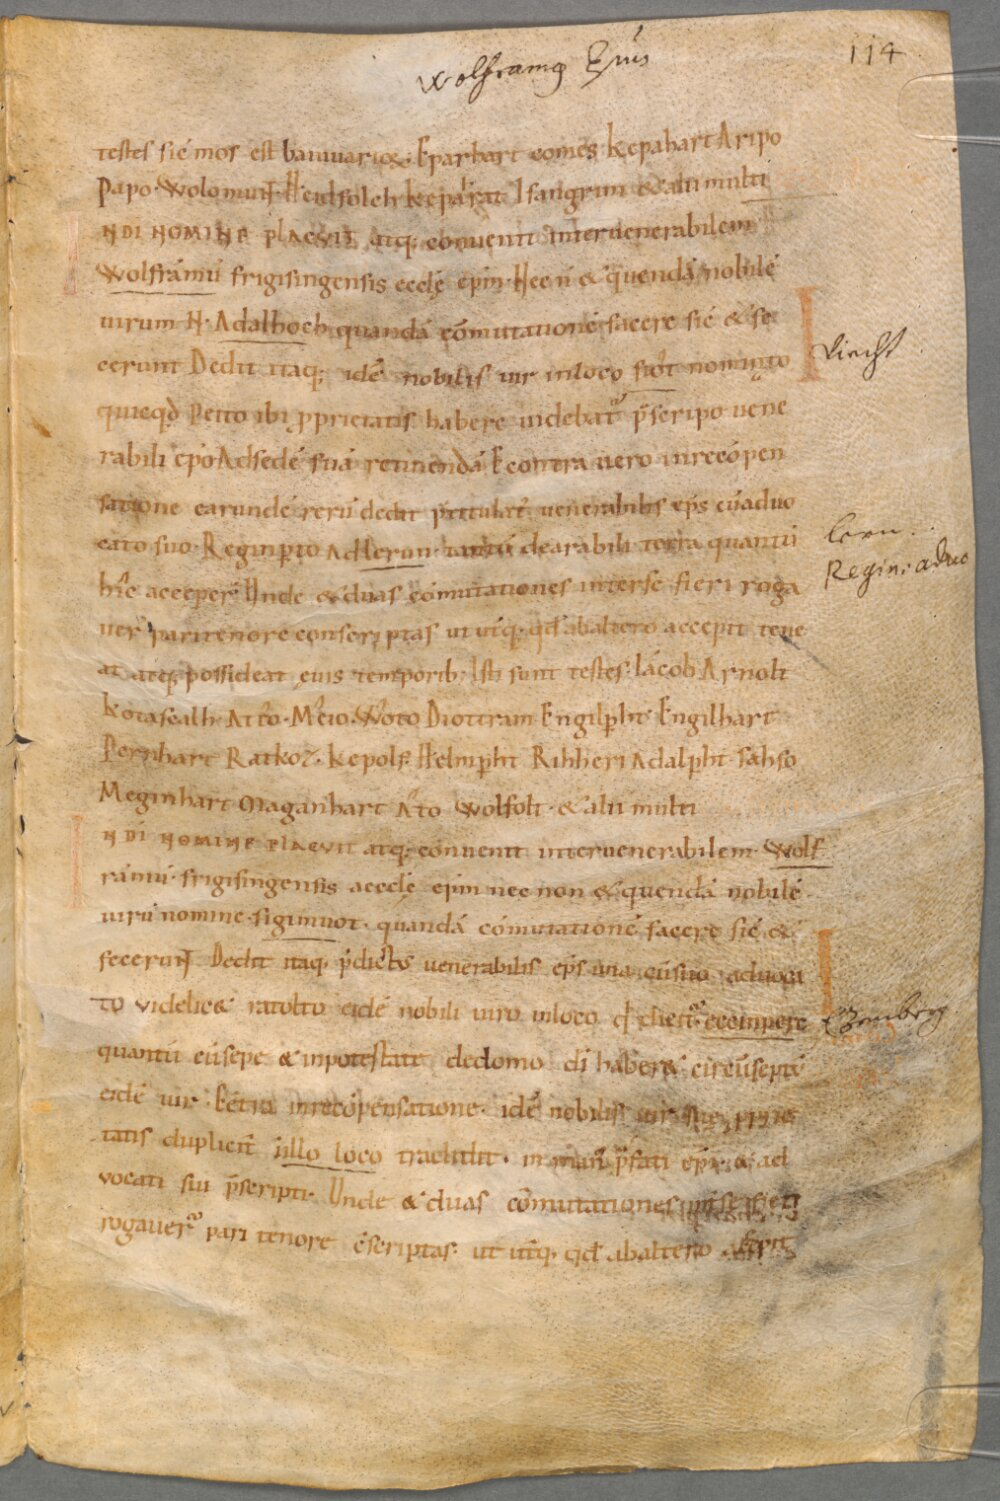 Wolframg Eṕus
114
testes sic mos est bauuuariox. Eparhart comes kepahart Aripo
Papo. Wolomunt. Heidfolch kepārat Isangrim & alii multi
IN DI NOMINE PLACVIT atq; conuenit inter uenerabilem
Wolfrāmū frigisingensis ecclę epm Nec ñ & quendā nobilē
uirum N. Adalhoch quandā cōmutationē facere sic & fe
cerunt Dedit itaq; idē nobilis uir in loco
quicqd Petto ibi pprietatis habere uidebat p̄scripo uene
rabili ep̄o Ad sedē suā retinendā E contra uero in recōpen
satione earundē rerū dedit ptitulat uenerabilis ep̄s cū aduo
cato suo. Reginpto Ad Lerun. tantū de arabili terra quantū
hic acceper Unde & duas cōmutationes inter se fieri roga
uer pari tenore conscriptas ut utq. qd ab altero accepit tene
at atq; possideat euis temporib. Isti sunt testes. Iacob Arnolt
Kotascalh Atto. Meio. Woto Diottram Engilpht. Engilhart
Pernhart Ratkoz. kepolf. Helmpht Rihheri Adalpht. Sahso
Meginhart Maganhart Ato Wolfolt. & alii multi
IN DI NOMINE PLACVIT atq; conuenit inter uenerabilem. Wolf
rāmū. frigisingensis aecclę epm nec non & quendā nobilē.
uirū nomine. sigimuot. quandā cōmutationē facere sic &
fecerunt Dedit itaq. p̄dictus uenerabilis ep̄s una cū suo aduoca
to videlic& ratolto eidē nobili uiro in loco q̄ dicit. eccinpere
quantū cū sepe & in potestate de domo di haber& circūseptū
eidē uir. Ectra in recōpensatione. idē nobilis uir suę pprie
tatis duplicit in illo loco tradidit. in manū p̄fati ep̄i & ad
vocati sui p̄scripti. Unde & duas cōmutationes int se fieri
rogauer pari tenore c̄scriptas. ut utq. qd ab altero accepit
Viecht
Lern.
Regin: aduo
Ezenberg